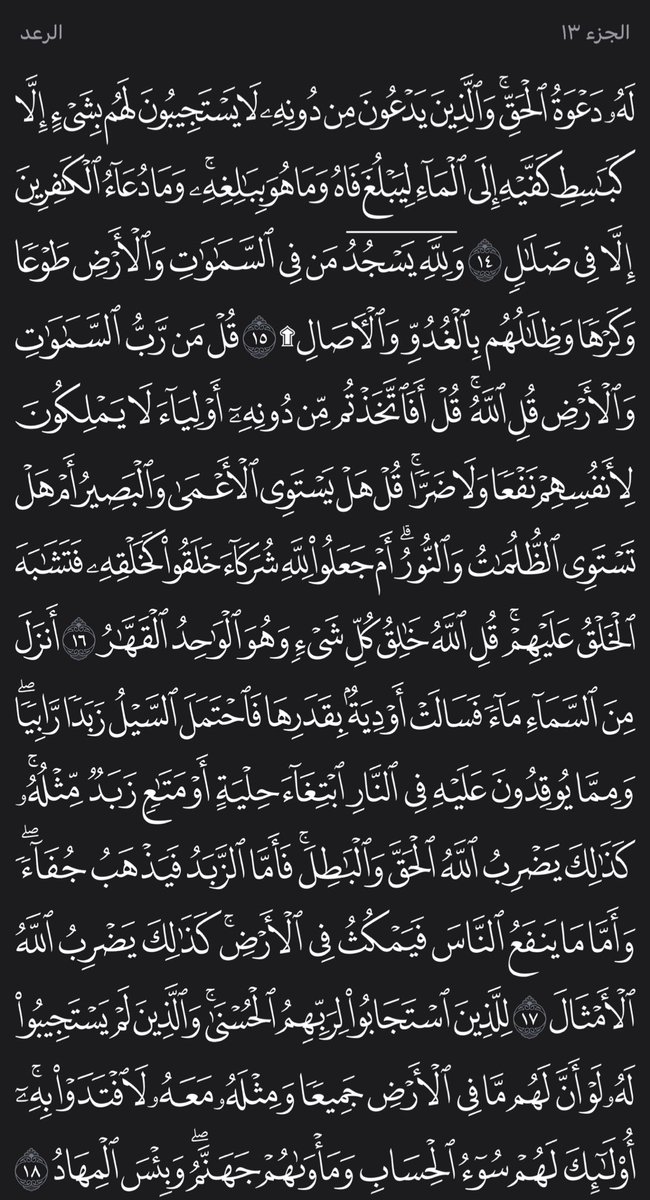 الجزء ١٣
الرعد
لَهُۥ دَعۡوَةُ ٱلۡحَقِّۚ وَٱلَّذِينَ يَدۡعُونَ مِن دُونِهِۦ لَا يَسۡتَجِيبُونَ لَهُم بِشَيۡءٍ إِلَّا
كَبَٰسِطِ كَفَّيۡهِ إِلَى ٱلۡمَآءِ لِيَبۡلُغَ فَاهُ وَمَا هُوَ بِبَٰلِغِهِۦۚ وَمَا دُعَآءُ ٱلۡكَٰفِرِينَ
إِلَّا فِي ضَلَٰلٖ ١٤ وَلِلَّهِۤ يَسۡجُدُۤ مَن فِي ٱلسَّمَٰوَٰتِ وَٱلۡأَرۡضِ طَوۡعٗا
وَكَرۡهٗا وَظِلَٰلُهُم بِٱلۡغُدُوِّ وَٱلۡأٓصَالِ ۩ ١٥ قُلۡ مَن رَّبُّ ٱلسَّمَٰوَٰتِ
وَٱلۡأَرۡضِ قُلِ ٱللَّهُۚ قُلۡ أَفَٱتَّخَذۡتُم مِّن دُونِهِۦٓ أَوۡلِيَآءَ لَا يَمۡلِكُونَ
لِأَنفُسِهِمۡ نَفۡعٗا وَلَا ضَرّٗاۚ قُلۡ هَلۡ يَسۡتَوِي ٱلۡأَعۡمَىٰ وَٱلۡبَصِيرُ أَمۡ هَلۡ
تَسۡتَوِي ٱلظُّلُمَٰتُ وَٱلنُّورُۗ أَمۡ جَعَلُواْ لِلَّهِ شُرَكَآءَ خَلَقُواْ كَخَلۡقِهِۦ فَتَشَٰبَهَ
ٱلۡخَلۡقُ عَلَيۡهِمۡۚ قُلِ ٱللَّهُ خَٰلِقُ كُلِّ شَيۡءٖ وَهُوَ ٱلۡوَٰحِدُ ٱلۡقَهَّٰرُ ١٦ أَنزَلَ
مِنَ ٱلسَّمَآءِ مَآءٗ فَسَالَتۡ أَوۡدِيَةُۢ بِقَدَرِهَا فَٱحۡتَمَلَ ٱلسَّيۡلُ زَبَدٗا رَّابِيٗاۖ
وَمِمَّا يُوقِدُونَ عَلَيۡهِ فِي ٱلنَّارِ ٱبۡتِغَآءَ حِلۡيَةٍ أَوۡ مَتَٰعٖ زَبَدٞ مِّثۡلُهُۥۚ
كَذَٰلِكَ يَضۡرِبُ ٱللَّهُ ٱلۡحَقَّ وَٱلۡبَٰطِلَۚ فَأَمَّا ٱلزَّبَدُ فَيَذۡهَبُ جُفَآءٗۖ
وَأَمَّا مَا يَنفَعُ ٱلنَّاسَ فَيَمۡكُثُ فِي ٱلۡأَرۡضِۚ كَذَٰلِكَ يَضۡرِبُ ٱللَّهُ
ٱلۡأَمۡثَالَ ١٧ لِلَّذِينَ ٱسۡتَجَابُواْ لِرَبِّهِمُ ٱلۡحُسۡنَىٰۚ وَٱلَّذِينَ لَمۡ يَسۡتَجِيبُواْ
لَهُۥ لَوۡ أَنَّ لَهُم مَّا فِي ٱلۡأَرۡضِ جَمِيعٗا وَمِثۡلَهُۥ مَعَهُۥ لَٱفۡتَدَوۡاْ بِهِۦٓۚ
أُوْلَٰٓئِكَ لَهُمۡ سُوٓءُ ٱلۡحِسَابِ وَمَأۡوَىٰهُمۡ جَهَنَّمُۖ وَبِئۡسَ ٱلۡمِهَادُ ١٨